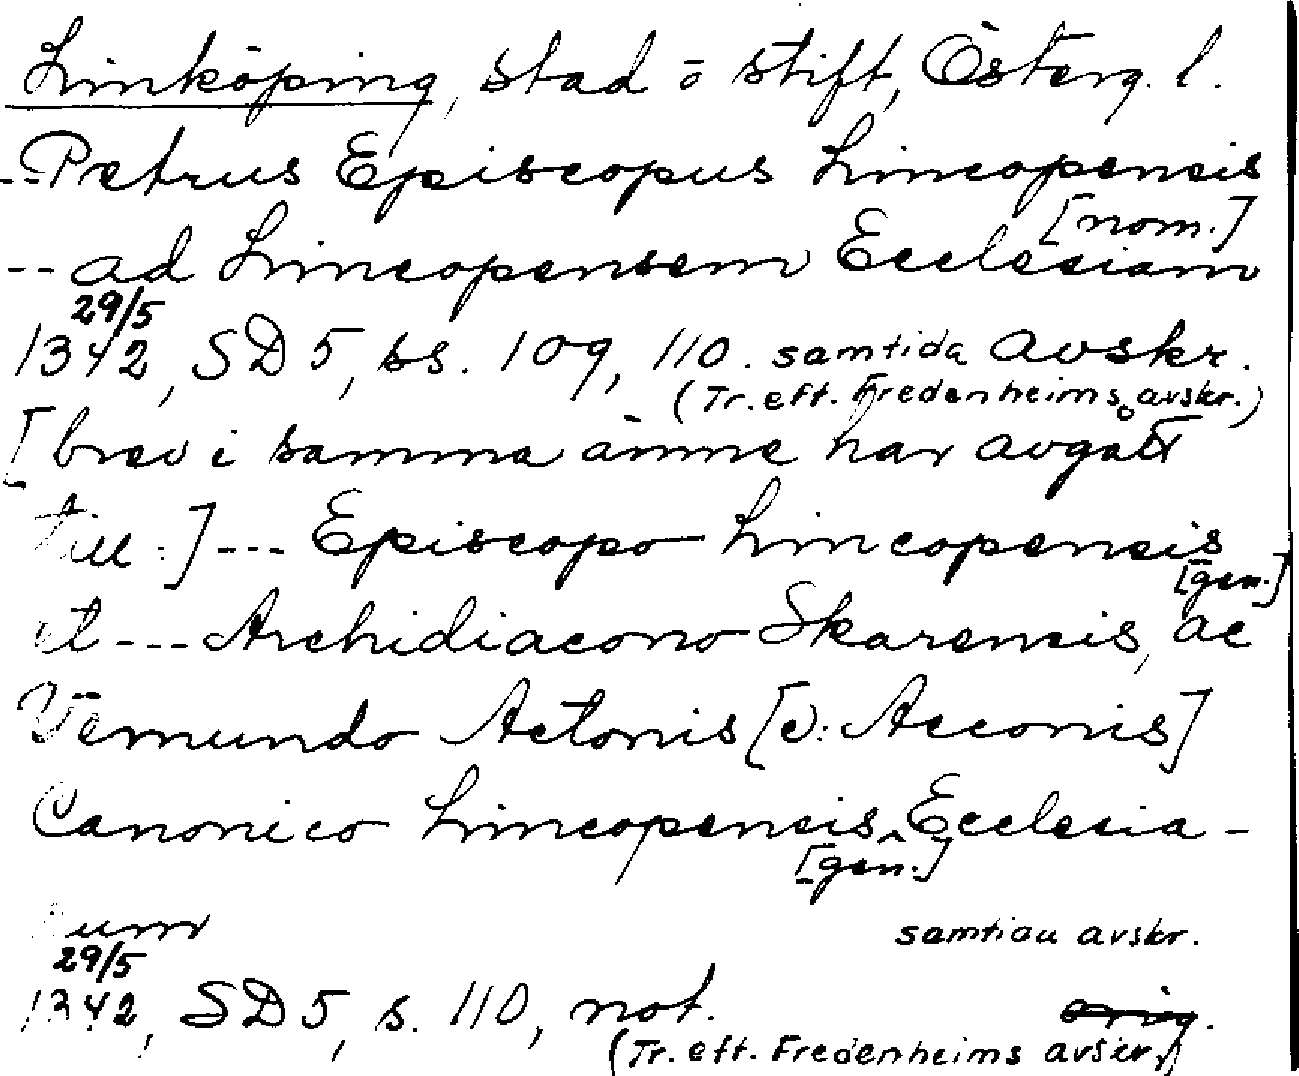 Linköping, stad o stift, Österg. l.
--Petrus Episcopus Lincopensis
[nom.]
--ad Lincopensem Ecclesiam
29/5
1342, SD 5, ss. 109, 110. samtida avskr.
(Tr. eft. Fredenheims avskr.)
[brev i samma ämne har avgått
till:] --- Episcopo Lincopensis
[gen.]
et --- Archidiacono Skarensis, ac
Vemundo Actonis [ɔ: Acconis]
Canonico Lincopensis Ecclesia-
[gen.]
rum
samtida avskr.
29/5
1342, SD 5, s. 110, not. orig.
(Tr. eft. Fredenheims avskr.)